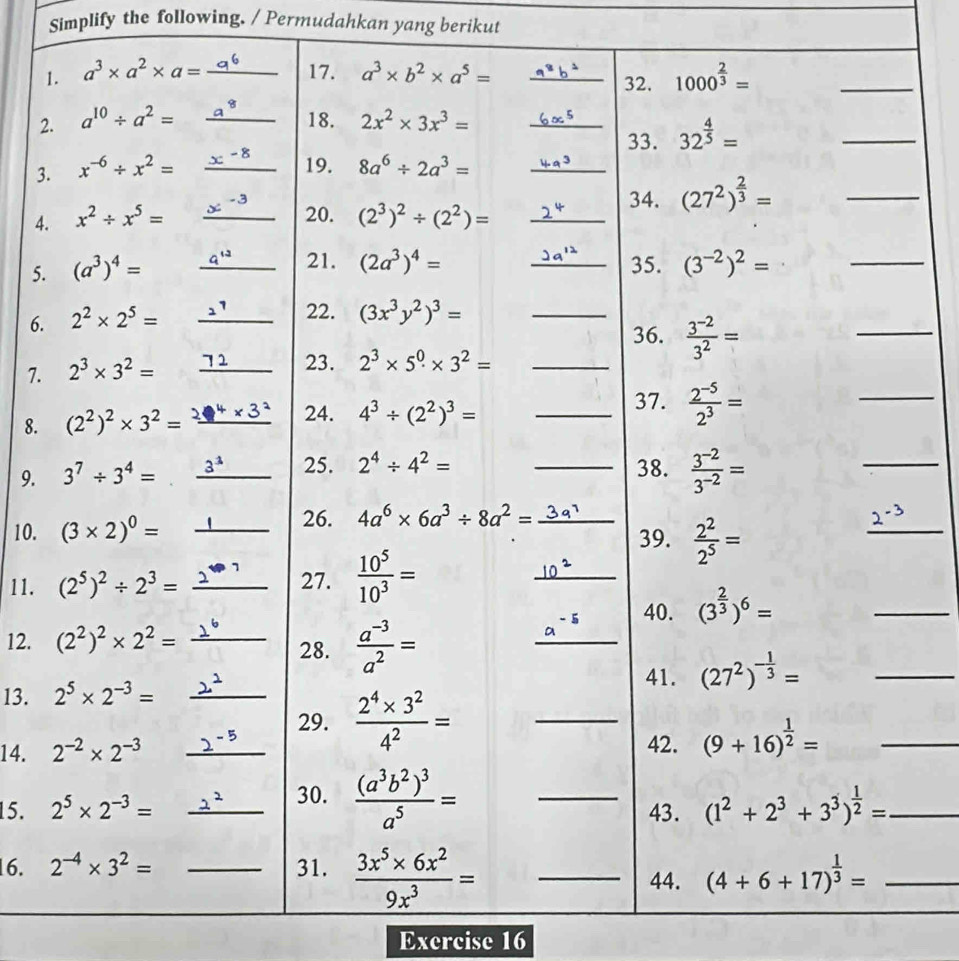 Simplify the following. / Permudahkan yang berikut
1. a³ × a² × a = a⁶
2. a¹⁰ ÷ a² = a⁸
3. x⁻⁶ ÷ x² = x⁻⁸
4. x² ÷ x⁵ = x⁻³
5. (a³)⁴ = a¹²
6. 2² × 2⁵ = 2⁷
7. 2³ × 3² = 72
8. (2²)² × 3² = 2⁴ × 3²
9. 3⁷ ÷ 3⁴ = 3³
10. (3 × 2)⁰ = 1
11. (2⁵)² ÷ 2³ = 2⁷
12. (2²)² × 2² = 2⁶
13. 2⁵ × 2⁻³ = 2²
14. 2⁻² × 2⁻³ 2⁻⁵
15. 2⁵ × 2⁻³ = 2²
16. 2⁻⁴ × 3² =
17. a³ × b² × a⁵ = a⁸b²
18. 2x² × 3x³ = 6x⁵
19. 8a⁶ ÷ 2a³ = 4a³
20. (2³)² ÷ (2²) = 2⁴
21. (2a³)⁴ = 2a¹²
22. (3x³y²)³ =
23. 2³ × 5⁰ × 3² =
24. 4³ ÷ (2²)³ =
25. 2⁴ ÷ 4² =
26. 4a⁶ × 6a³ ÷ 8a² = 3a⁷
27. 10⁵/10³ = 10²
28. a⁻³/a² = a⁻⁵
29. (2⁴ × 3²)/4² =
30. (a³b²)³/a⁵ =
31. (3x⁵ × 6x²)/9x³ =
32. 1000^(2/3) =
33. 32^(4/5) =
34. (27²)^(2/3) =
35. (3⁻²)² =
36. 3⁻²/3² =
37. 2⁻⁵/2³ =
38. 3⁻²/3⁻² =
39. 2²/2⁵ = 2⁻³
40. (3^(2/3))⁶ =
41. (27²)^(-1/3) =
42. (9 + 16)^(1/2) =
43. (1² + 2³ + 3³)^(1/2) =
44. (4 + 6 + 17)^(1/3) =
Exercise 16